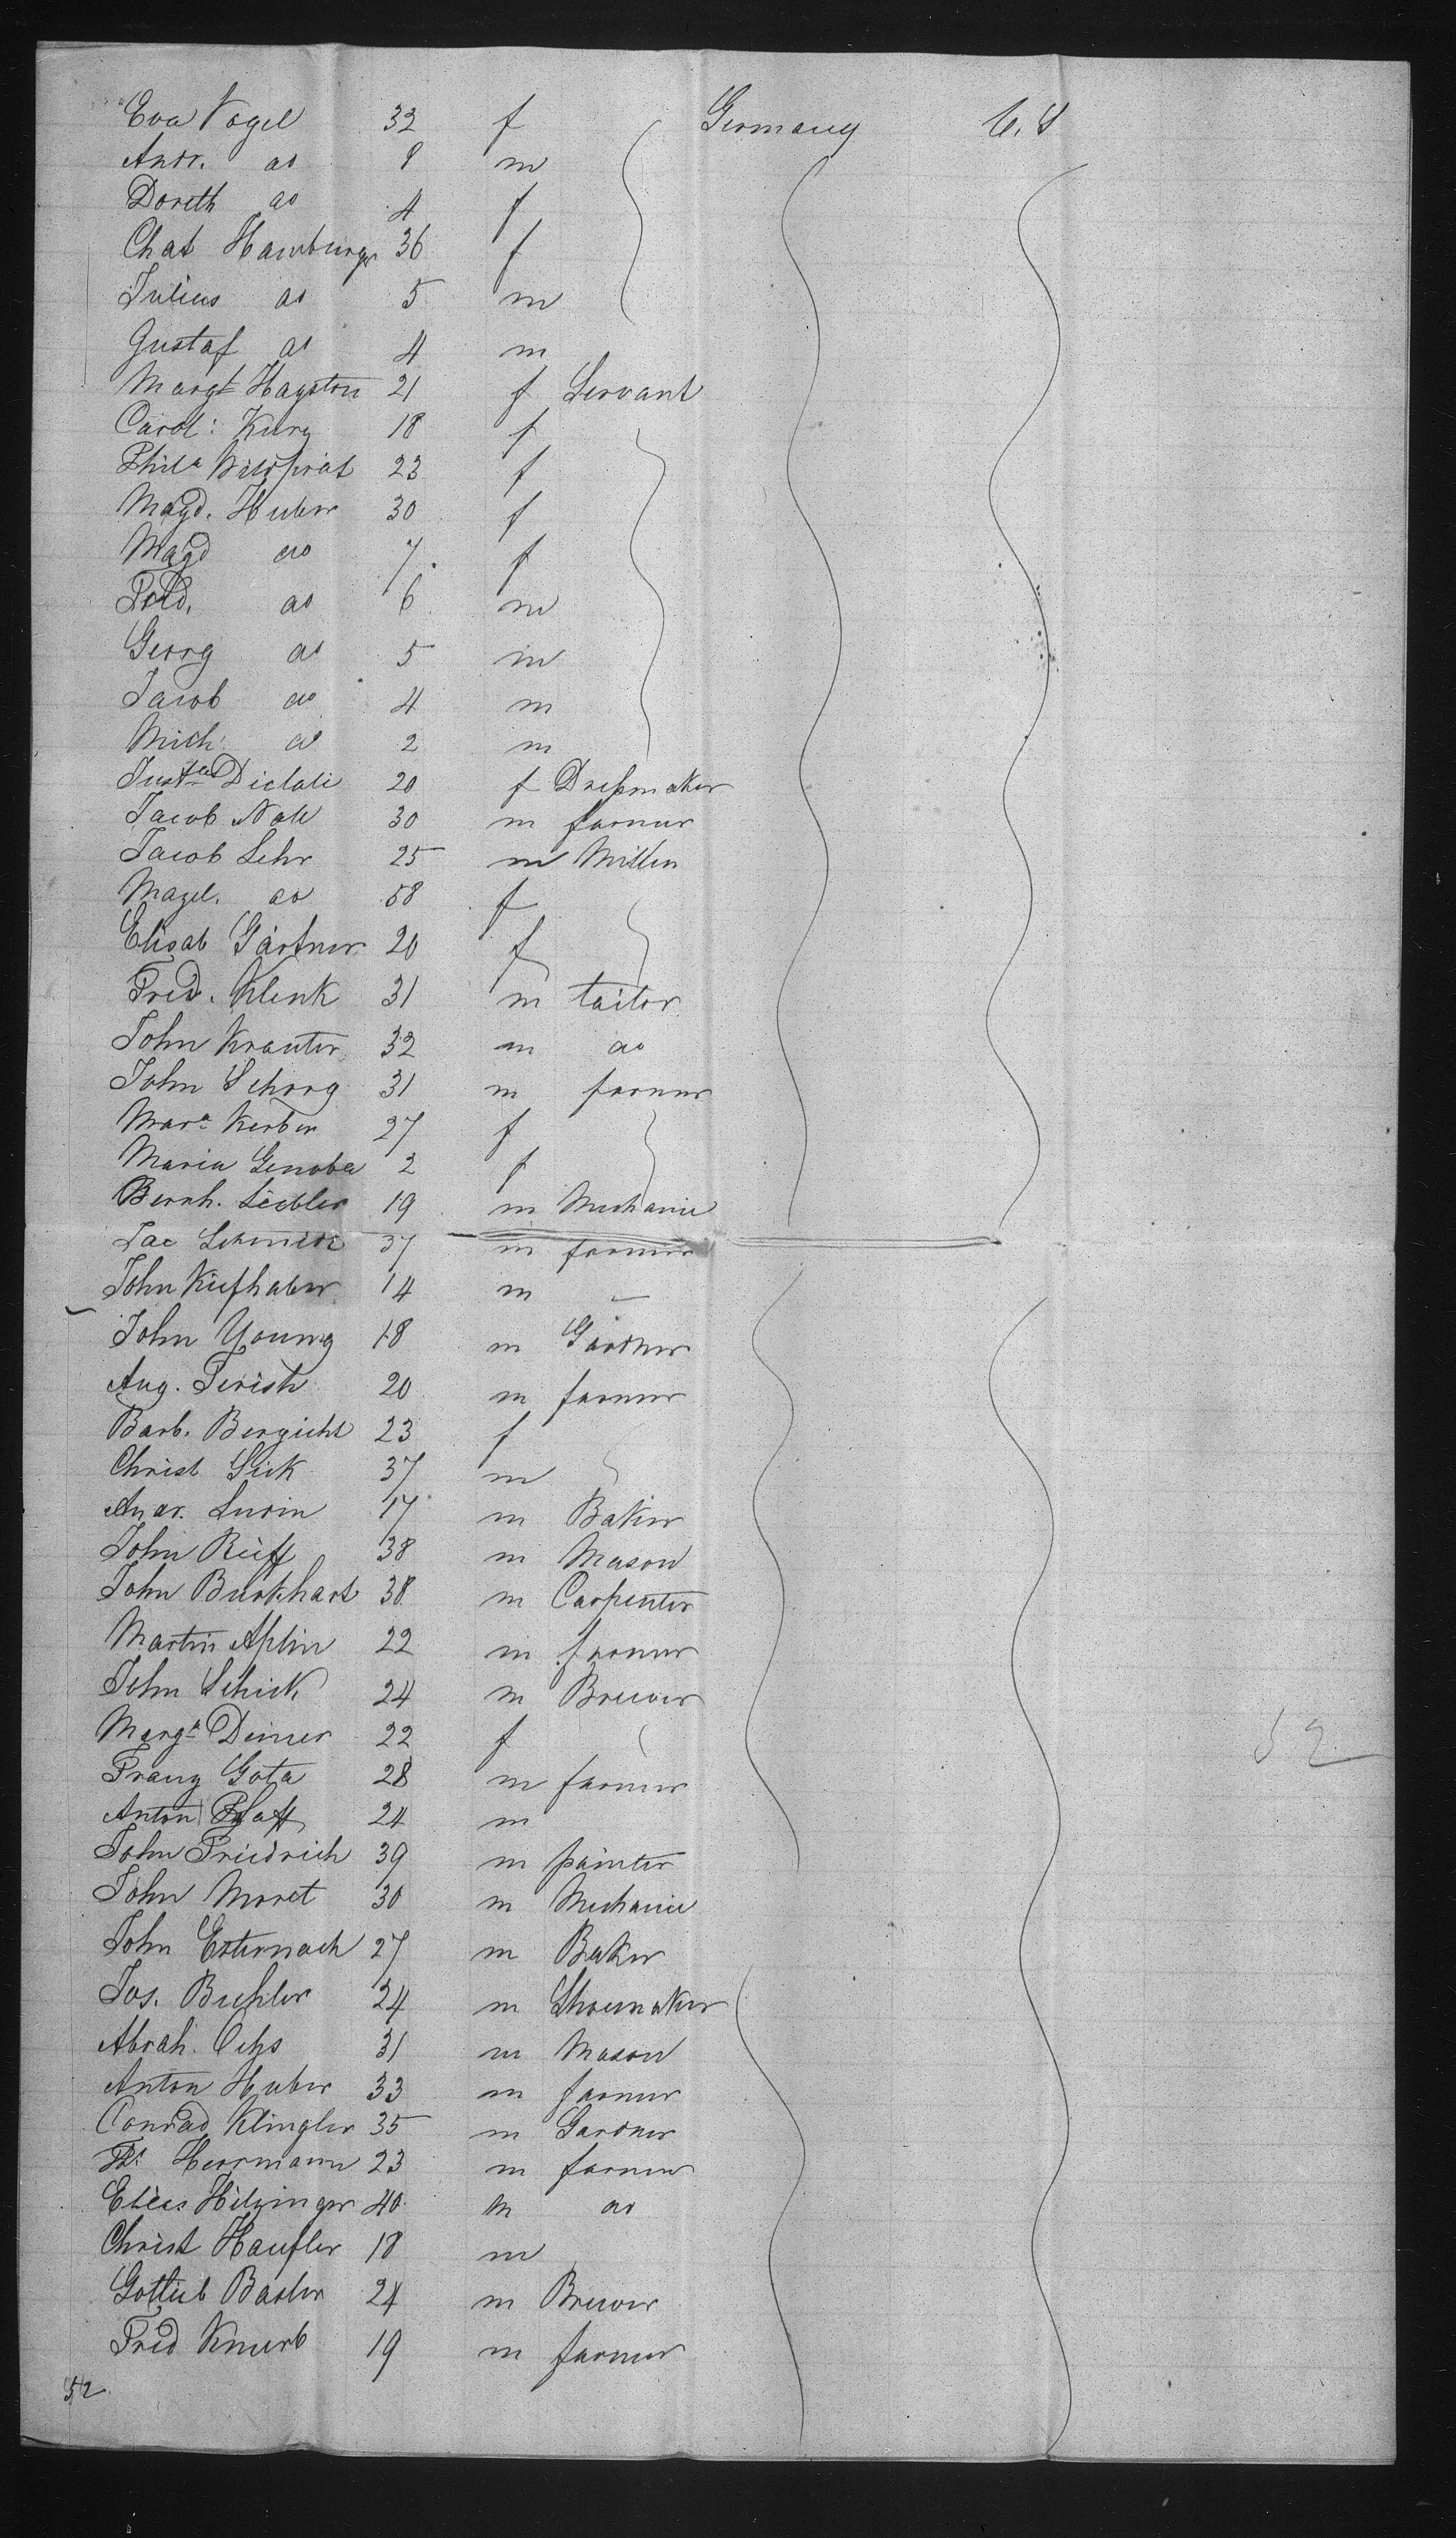 Eva Vogel 32 f Germany U.S
Andr. do 9 m
Doreth do 4 f
Chat Hamburger 36 f
Julius do 5 m
Gustaf do 4 m
Margt Hayston 21 f Servant
Carol: Kurz 18 f
Phila 23 f
Magd. Huber 30 f
Magd do 7 f
Ferd. do 6 m
Georg do 5 m
Jacob do 4 m
Mich. do 2 m
Justa 20 f Dressmaker
Jacob Noll 30 m farmer
Jacob Lehr 25 m Miller
Magd. do 58 f
Elisab Gärtner 20 f
Fred. Klenk 31 m tailor
John Krauter 32 m do
John Schorg 31 m farmer
Mara Kerber 27 f
Maria Genoba 2 f
Bernh. Liebler 19 m Mechanic
Jac Schmidt 37 m farmer
John Kiefhaber 14 m —
John Young 18 m Gardner
Aug. Ferish 20 m farmer
Barb. Bergicht 23 f
Christ Sick 37 m
Andr. Lurin 17 m Baker
John Reiff 38 m Mason
John Burkhart 38 m Carpenter
Martin Aplin 22 m farmer
John Schick 24 m Brewer
Marga Deiner 22 f
Franz Gota 28 m farmer
Anton Pfaff 24 m
John Friedrich 39 m painter
John Moret 30 m Mechanic
John Esternach 27 m Baker
Jos. Buhler 24 m Shoemaker
Abrah. Ochs 31 m Mason
Anton Huber 33 m farmer
Conrad Klingler 35 m Gardner
Herrmann 23 m farmer
Elias Hilzinger 40 m do
Christ Haufler 18 m
Gottlieb Bader 24 m Brewer
Fred Knurb 19 m farmer
52
52